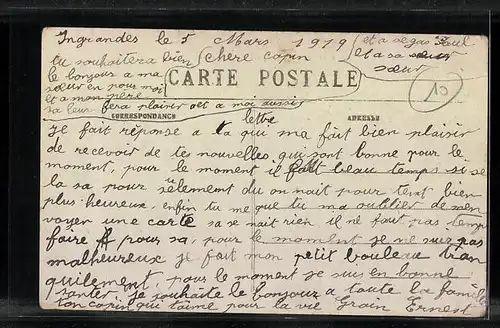 Ingrandes le 5 Mars 1919
tu souhaitera bien
le bonjour a ma
sœur en pour moi
et a mon père
sa leur fera plaisir et a moi aussi
chère copin
et a vegas Paul
et a sa sœur
sœur
CARTE POSTALE
10
CORRESPONDANCE
ADRESSE
lettre
Je fait réponse a ta qui ma fait bien plaisir
de recevoir de tes nouvelles qui sont bonne pour le
moment, pour le moment il fait beau temps si se
la sa pour sélement du on nait pour tent bien
plus heureux, enfin tu me que tu ma oublier de men
voyer une carte sa se nait rien il ne faut pas temps
faire A pour sa, pour le moment je ne suis pas
malheureux je fait mon petit bouleau tran
quilement, pour le moment je suis en bonne
santer, je souhaite le bonjour a toute la famille
ton copin qui t'aime pour la vie Grain Ernest